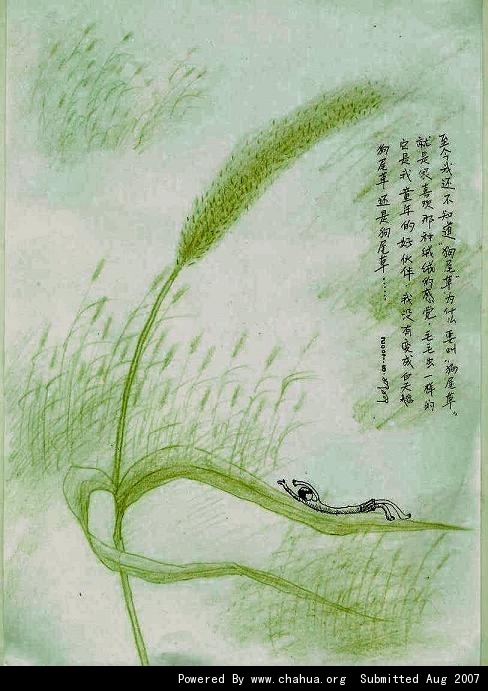 至今我还不知道“狗尾草”为什么要叫“狗尾草”。
就是很喜欢那种绒绒的感觉，毛毛虫一样的
它是我童年的好伙伴，我没有变成白天鹅
狗尾草还是狗尾草……
Powered By www.chahua.org Submitted Aug 2007